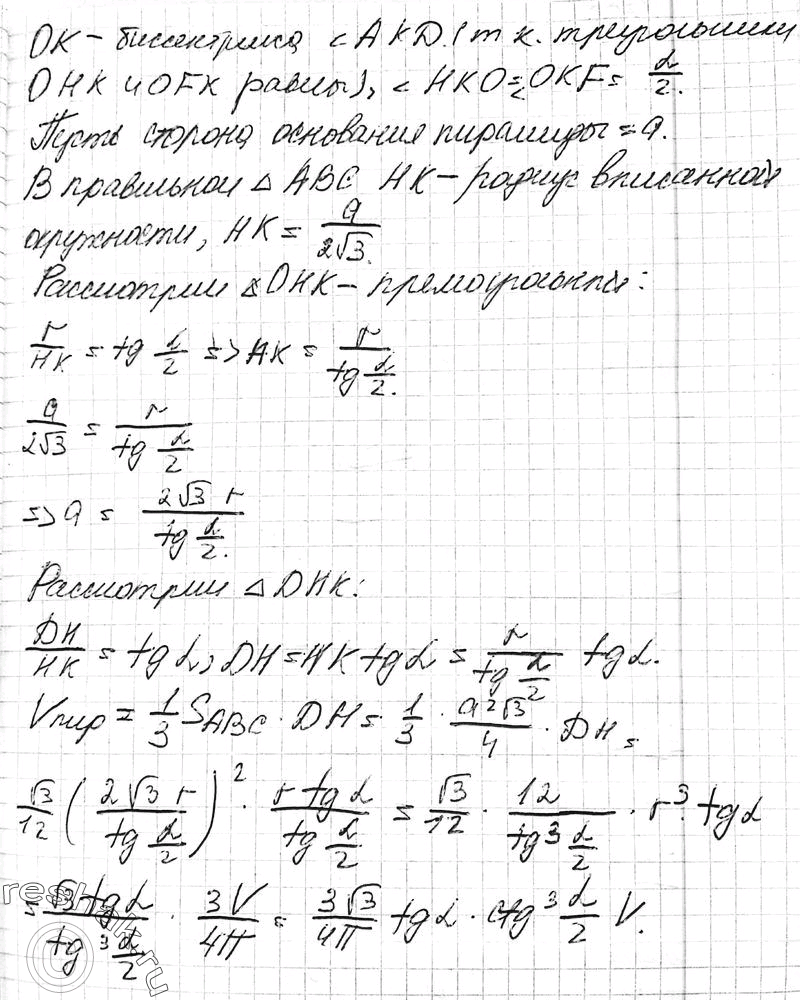 OK – биссектриса ∠AKD. (т.к. треугольники
OHK и OFK равны), ∠HKO = ∠OKF = α/2.
Пусть сторона основания пирамиды = a.
В правильной △ABC HK – радиус вписанной
окружности, HK = a/(2√3).
Рассмотрим △OHK – прямоугольный:
r/HK = tg α/2 => AK = r/(tg α/2).
a/(2√3) = r/(tg α/2)
=> a = (2√3 r)/(tg α/2).
Рассмотрим △DHK:
DH/HK = tg α, DH = HK tg α = r/(tg α/2) tg α.
Vпир = 1/3 S_ABC · DH = 1/3 · (a²√3)/4 · DH =
√3/12 ((2√3 r)/(tg α/2))² · (r tg α)/(tg α/2) = √3/12 · 12/(tg³ α/2) · r³ · tg α
= (√3 tg α)/(tg³ α/2) · 3V/4π = 3√3/4π tg α · ctg³ α/2 V.